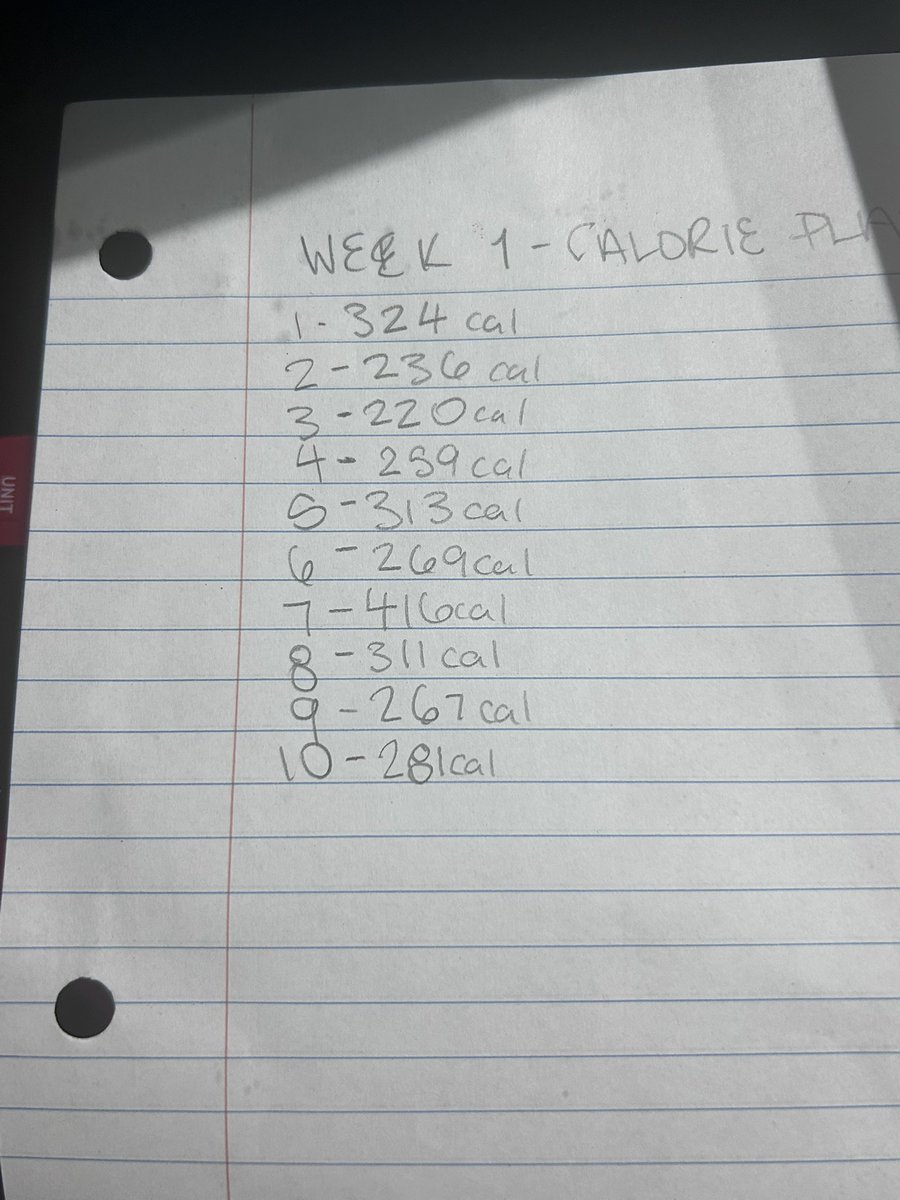 WEEK 1 - CALORIE PLA
1- 324 cal
2 - 236 cal
3 - 220cal
4 - 259cal
5 - 313 cal
6 - 269cal
7 - 416cal
8 - 311 cal
9 - 267 cal
10 - 281cal
UNIT